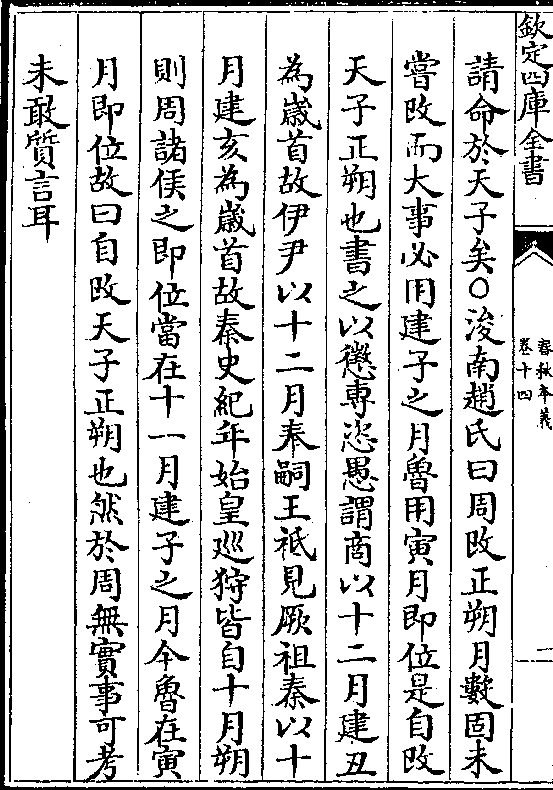 欽定四庫全書
春秋本義
卷十四
二
請命於天子矣○浚南趙氏曰周改正朔月數固未
嘗改而大事必用建子之月魯用寅月即位是自改
天子正朔也書之以懲專恣愚謂商以十二月建丑
為歲首故伊尹以十二月奉嗣王祗見厥祖秦以十
月建亥為歲首故秦史紀年始皇巡狩皆自十月朔
則周諸侯之即位當在十一月建子之月今魯在寅
月即位故曰自改天子正朔也然於周無實事可考
未敢質言耳